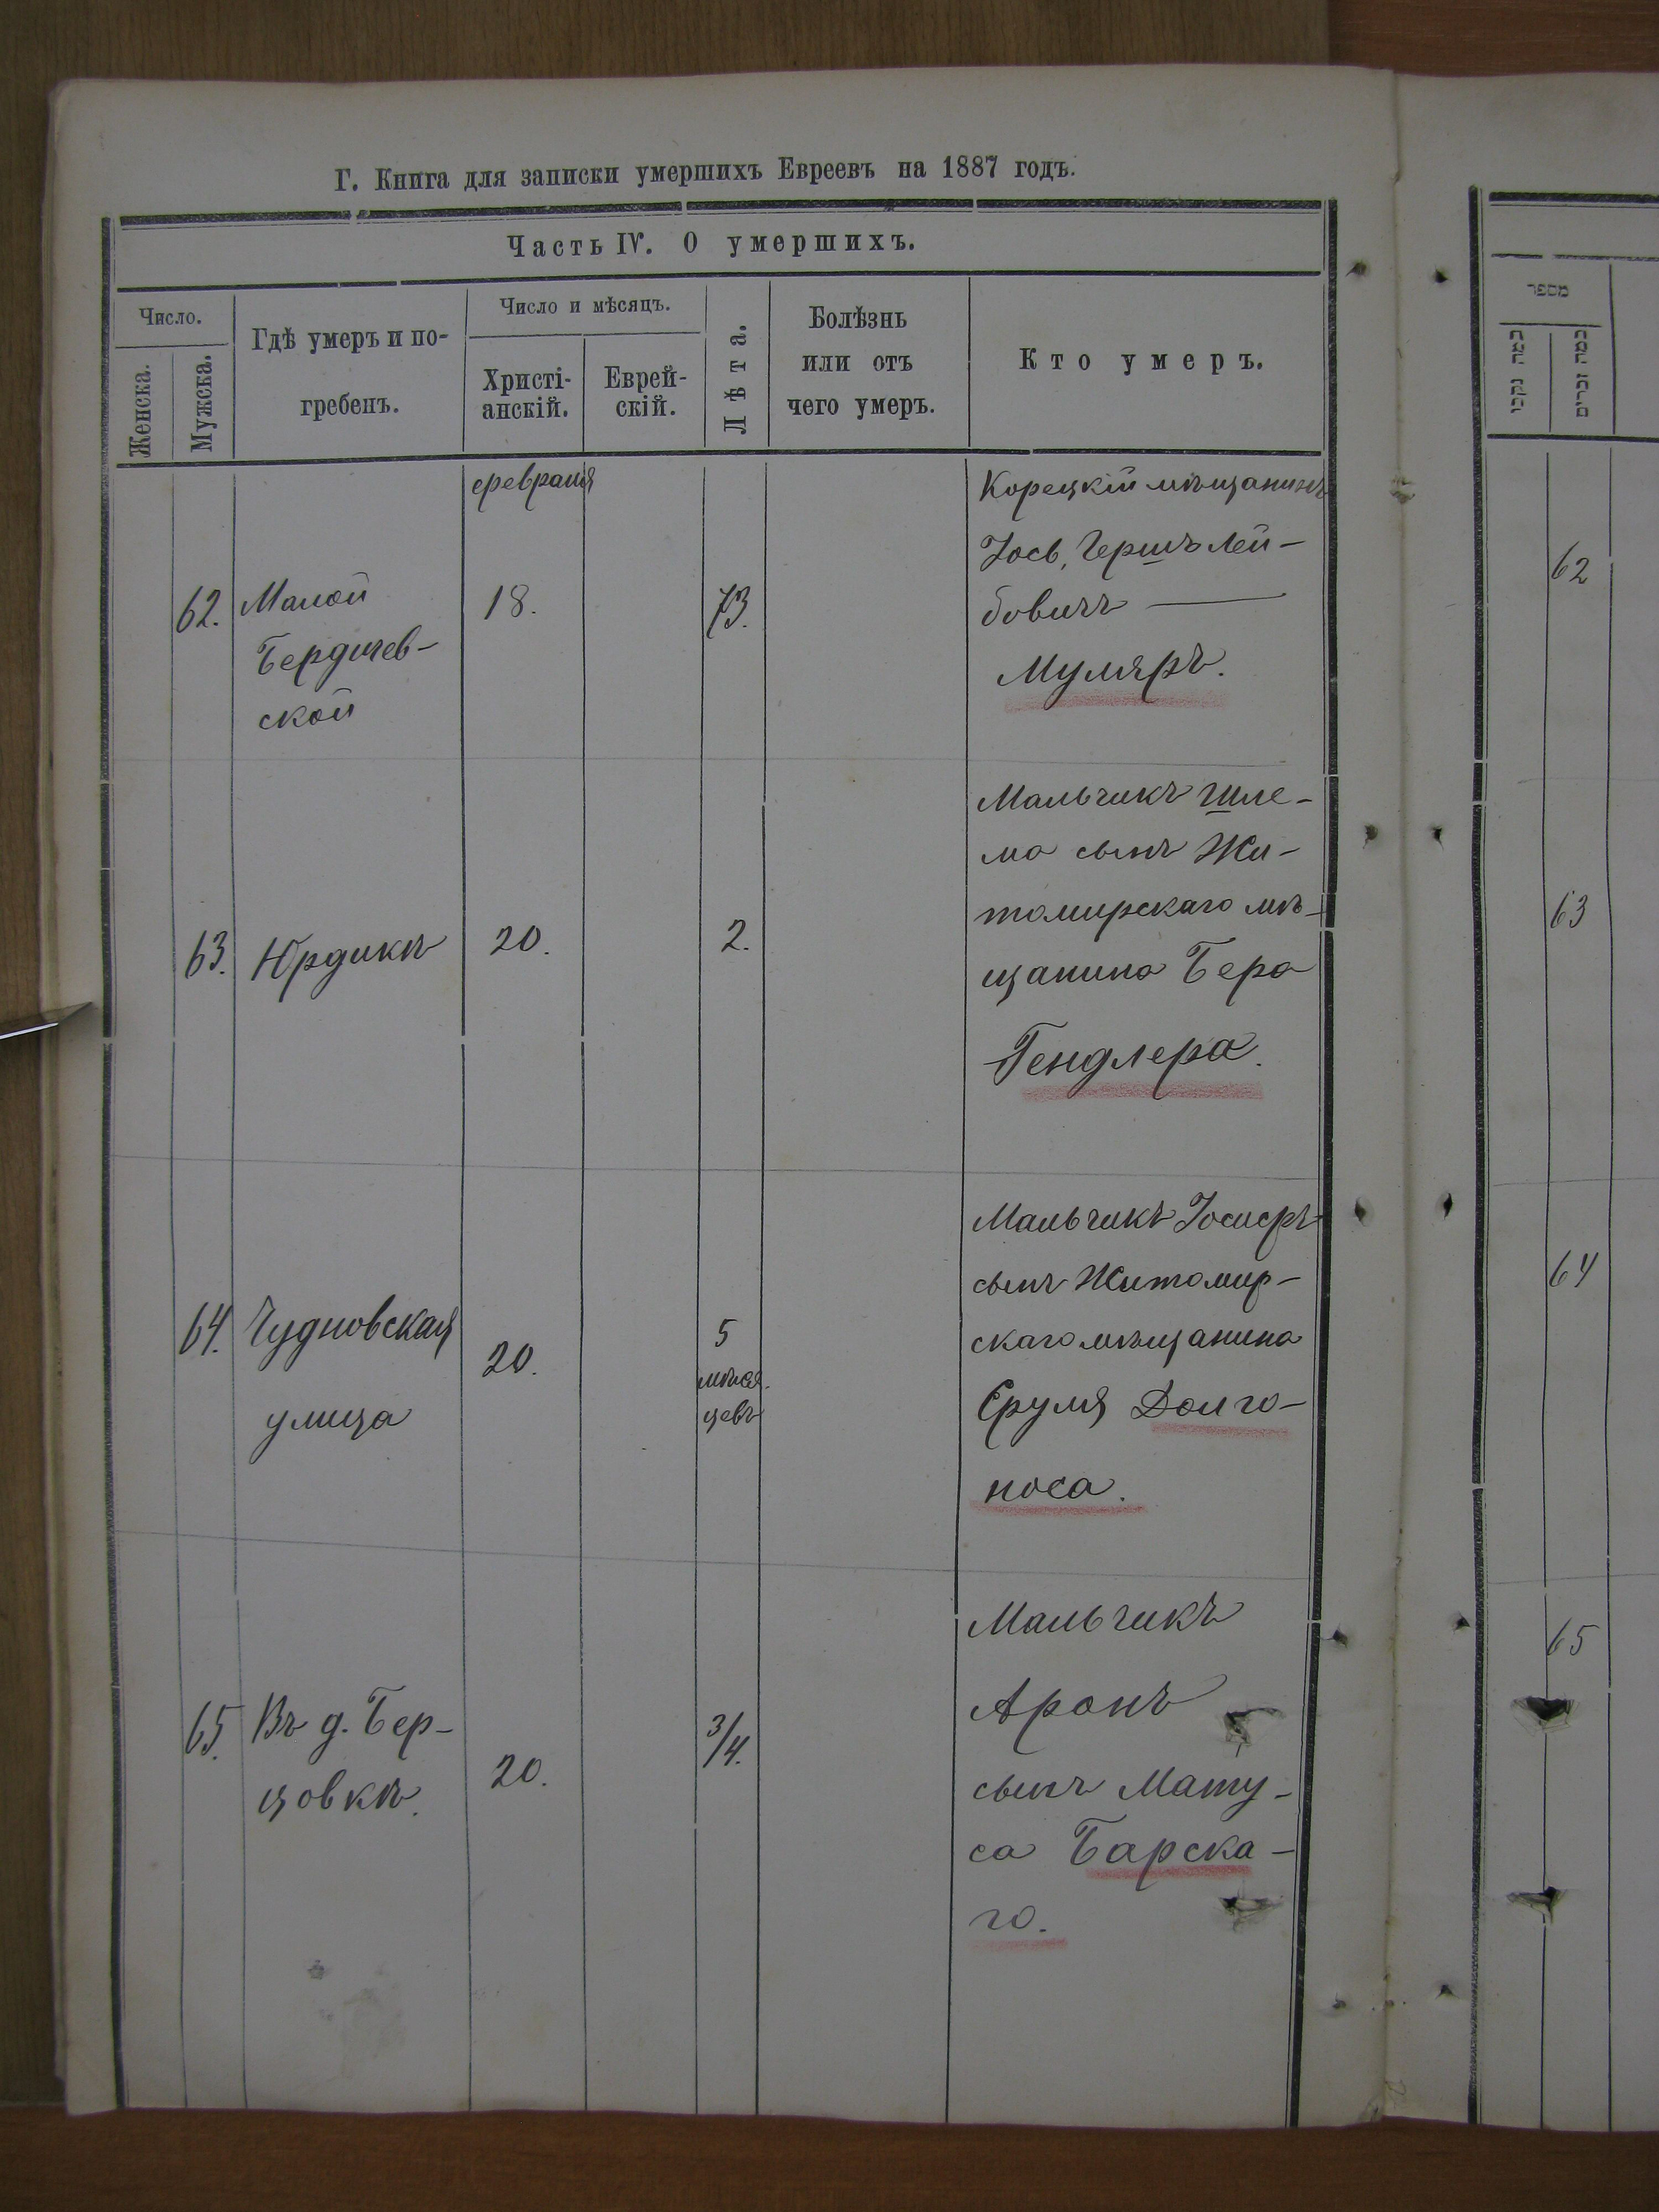 Г. Книга для записки умершихъ Евреевъ на 1887 годъ.
Часть IV. О умершихъ.
Число.
Женска.
Мужска.
Гдѣ умеръ и по-
гребенъ.
Число и мѣсяцъ.
Христі-
анскій.
Еврей-
скій.
Лѣта.
Болѣзнь
или отъ
чего умеръ.
Кто умеръ.
מספר
כמה נקבי
כמה זכרים
февраля
62.
Малой
Бердичев-
ской
18.
73.
Корецкій мѣщанинъ
Іось, Гершъ Лей-
бовичъ
Муляръ.
62
63.
Юрдикъ
20.
2.
Мальчикъ Шле-
ма сынъ Жи-
томирскаго мѣ-
щанина Бера
Гендлера.
63
64.
Чудновская
улица
20.
5
мѣся
цевъ
Мальчикъ Іосифъ
сынъ Житомир-
скаго мѣщанина
Сруля Долго-
носа.
64
65.
Въ д. Бер-
цовкѣ.
20.
3/4.
Мальчикъ
Аронъ
сынъ Мату-
са Барска-
го.
65